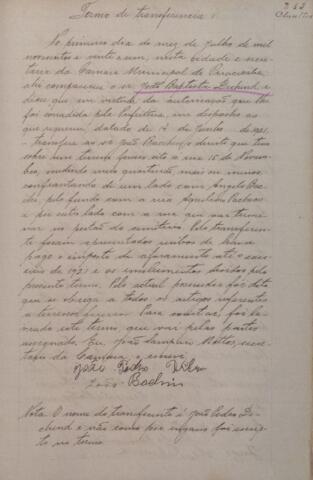 Termo de transferencia
No primeiro dia do mez de Julho de mil
novecentos e vinte e um, nesta cidade e secre-
taria da Camara Municipal de Piracicaba,
ahi compareceu o sr. João Baptista Dechend e
disse que em virtude da autorização que lhe
foi concedida pela Prefeitura, em despacho ao
que requereu, datado de 17 de Junho de 1921,
transfere ao sr. João Bacchin o direito que tem
sobre um terreno foreiro sito a rua 15 de Novem-
bro, medindo meio quarteirão mais ou menos
confrontando de um lado com Angelo
pelo fundo com a rua Aquilino Pacheco
e por outro lado com a rua que vae termi-
nar no portão do cemiterio. Pelo transferen-
te foram apresentados recibos de haver
pago o imposto de aforamento até o exer-
cicio de 1921 e os emolumentos devidos pelo
presente termo. Pelo actual possuidor foi dito
que se obriga a todos os artigos referentes
a terrenos foreiros. Para constar, foi la-
vrado este termo, que vai pelas partes
assignado. Eu, João Sampaio Mattos, secre-
tario da Camara, o escrevi
João Pedro
João Bachin
Nota: O nome do transferente é João Pedro De-
chend e não como por engano foi escrip-
to no termo.